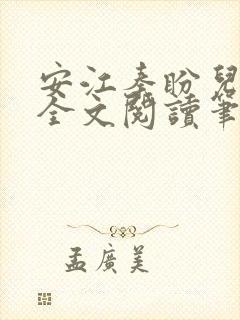 安江秦盼兒
全文閱讀筆
孟廣美